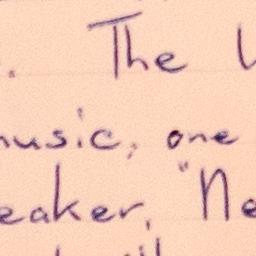 . The
music, one
eaker, "Ne